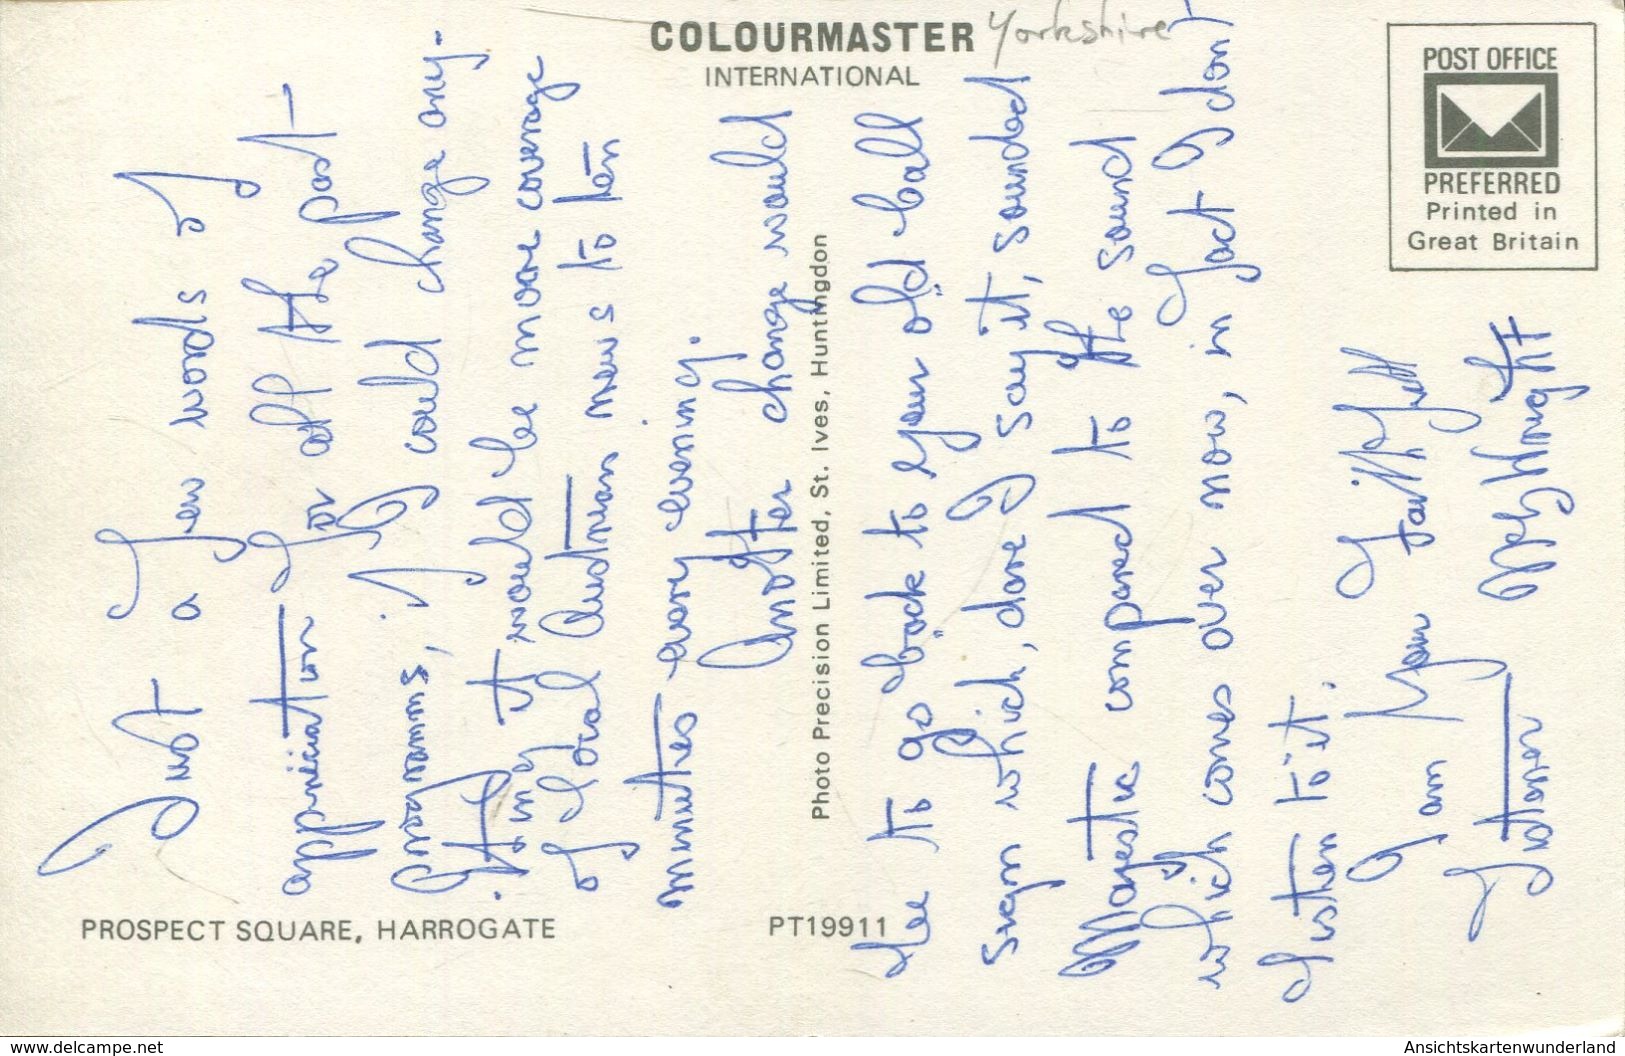 COLOURMASTER
INTERNATIONAL
Yorkshire
POST OFFICE
PREFERRED
Printed in
Great Britain
PROSPECT SQUARE, HARROGATE
PT19911
Photo Precision Limited, St. Ives, Huntingdon
Just a few words of
appreciation for all the past
programms, if I could change any-
thing it would be more coverage
of local Austrian news to ten
minutes every evening.
Another change would
be to go back to your old ball
sign which, dare I say it, sounded
Majestic compared to the sound
which comes over now, in fact I dont
listen to it.
I am your faithfull
listener
www.delcampe.net
Ansichtskartenwunderland